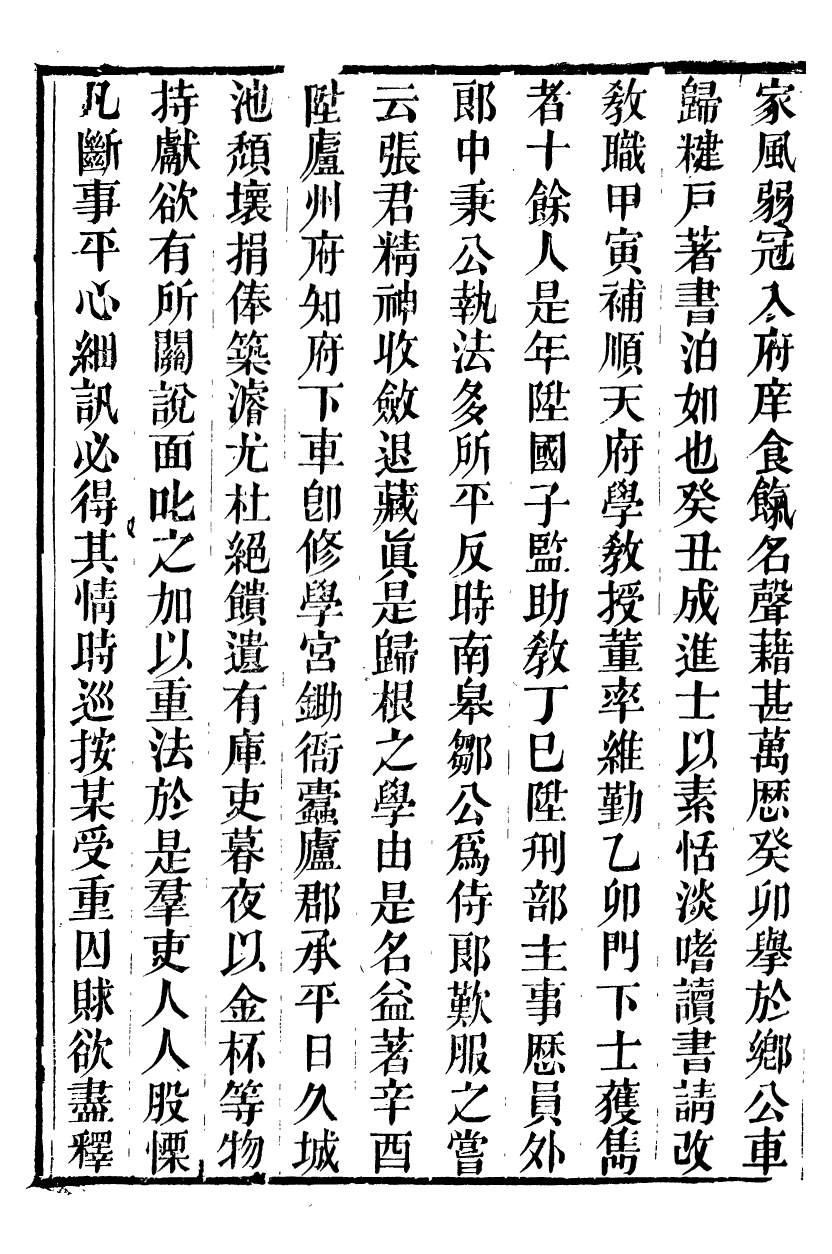 家風弱冠入府庠食餼名聲藉甚萬厯癸卯擧於鄉公車
歸楗戸著書泊如也癸丑成進士以素恬淡嗜讀書請改
敎職甲寅補順天府學敎授董率維勤乙卯門下士獲雋
者十餘人是年陞國子監助敎丁巳陞刑部主事厯員外
郎中秉公執法多所平反時南皋鄒公爲侍郎歎服之嘗
云張君精神收斂退藏眞是歸根之學由是名益著辛酉
陞廬州府知府下車卽修學宫鋤衙蠹廬郡承平日久城
池頽壞捐俸築濬尤杜絕饋遺有庫吏暮夜以金杯等物
持獻欲有所關說面叱之加以重法於是羣吏人人股慄
凡斷事平心細訊必得其情時巡按某受重囚賕欲盡釋